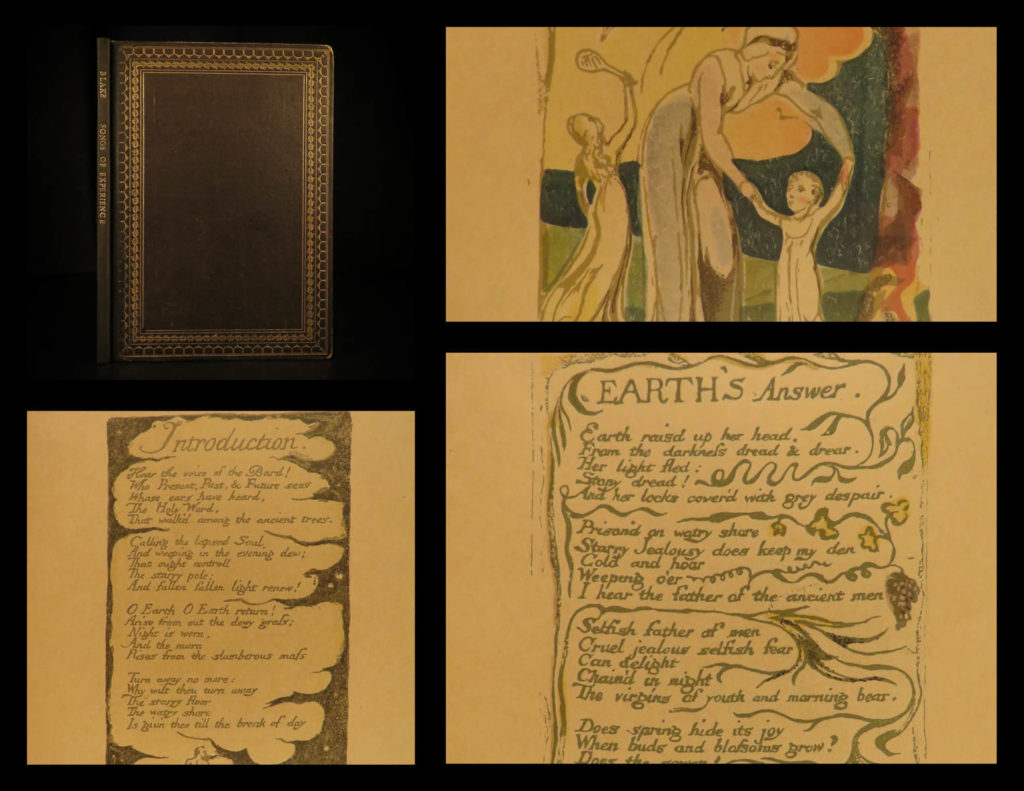 BLAKE SONGS OF EXPERIENCE
Introduction.
Hear the voice of the Bard!
Who Present, Past, & Future sees
Whose ears have heard,
The Holy Word,
That walk'd among the ancient trees.
Calling the lapsed Soul
And weeping in the evening dew:
That might controll
The starry pole;
And fallen fallen light renew!
O Earth O Earth return!
Arise from out the dewy graſs;
Night is worn,
And the morn
Rises from the slumberous maſs
Turn away no more:
Why wilt thou turn away
The starry floor
The watry shore
Is giv'n thee till the break of day
EARTH'S Answer.
Earth rais'd up her head,
From the darkneſs dread & drear.
Her light fled:
Stony dread!
And her locks cover'd with grey despair.
Prison'd on watry shore
Starry Jealousy does keep my den
Cold and hoar
Weeping o'er
I hear the father of the ancient men
Selfish father of men
Cruel jealous selfish fear
Can delight
Chain'd in night
The virgins of youth and morning bear.
Does spring hide its joy
When buds and bloſsoms grow?
Does the